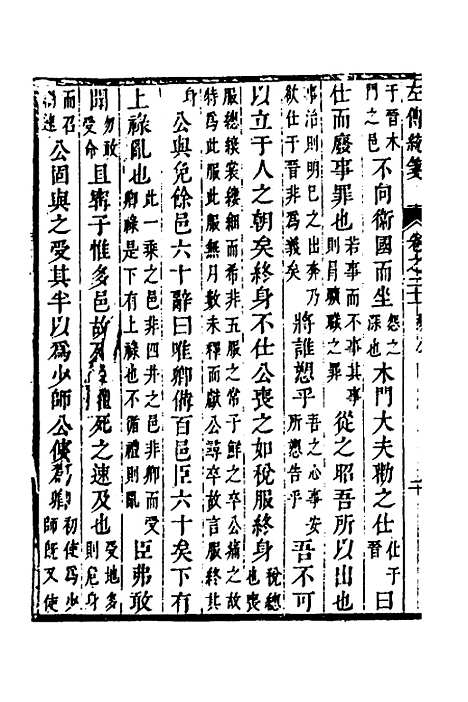 左傳統箋 卷之二十
于晉木門之邑不向衛國而坐怨之深也木門大夫勸之仕仕于晉曰
仕而廢事罪也若事而不事其事則有曠職之罪從之昭吾所以出也
事治則明巳之出奔乃欲仕于晉非爲義矣將誰愬乎吾之心事安所愬告乎吾不可
以立于人之朝矣終身不仕公喪之如稅服終身稅總也喪
服總縗裳縷細而希非五服之常于鮮之卒公痛之故特爲此服此服無月數未釋而獻公尋卒故言服終其
身公與免餘邑六十辭曰唯卿備百邑臣六十矣下有
上祿亂也此一乘之邑非四井之邑非卿而受卿祿是下有上祿也不循禮則亂臣弗敢
聞勿敢受命且甯子惟多邑故死 死之速及也受地多則危身
而召禍速公固與之受其半以爲少師公使爲卿初使爲少師旣又使